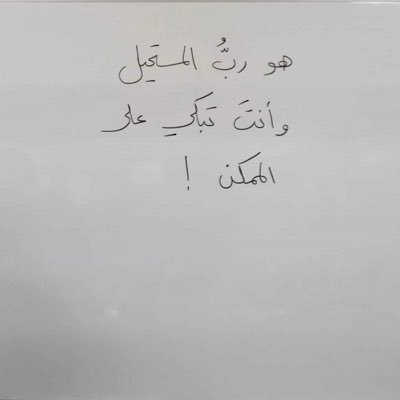 هو ربُّ المستحيل
وأنتَ تبكي على
الممكن !